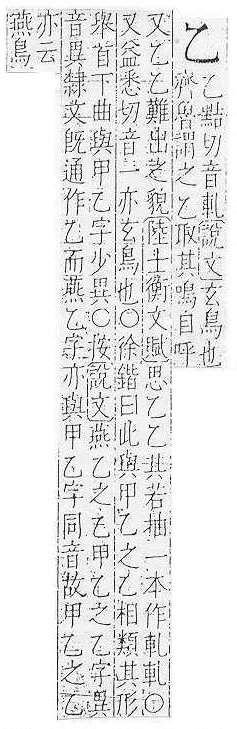 乙
乙黠切音軋說文玄鳥也
齊魯謂之乙取其鳴自呼
又乙乙難出之貌陸士衡文賦思乙乙其若抽一本作軋軋○
又益悉切音一亦玄鳥也○徐鍇曰此與甲乙之乙相類其形
舉首下曲與甲乙字少異○按說文燕乙之乙甲乙之乙字異
音異隸文旣通作乙而燕乙字亦與甲乙字同音故甲乙之乙
亦云
燕鳥